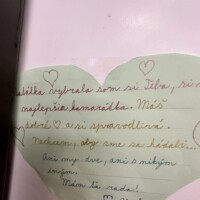 vybrala som si Teba, si m
najlepšia kamarátka. Máš
♡ a si spravodlivá.
Nechcem, aby sme sa hádali...
Ani my dve, ani s nikým
iným.
Mám ťa rada!